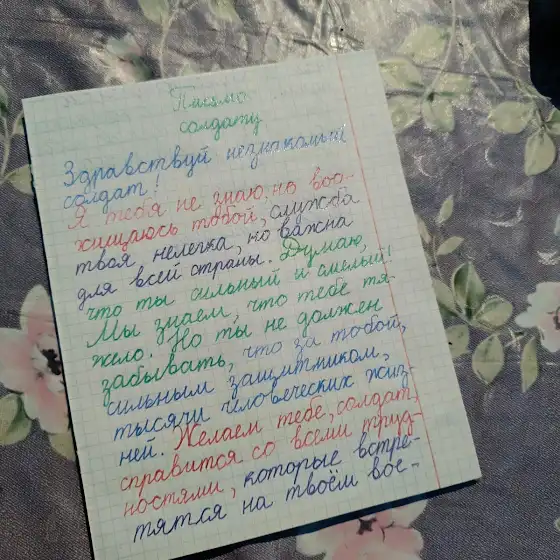 Письмо
солдату
Здравствуй незнакомый
солдат!
Я тебя не знаю, но вос-
хищаюсь тобой, служба
твоя нелегка, но важна
для всей страны. Думаю,
что ты сильный и смелый!
Мы знаем, что тебе тя-
жело. Но ты не должен
забывать, что за тобой,
сильным защитником,
тысячи человеческих жиз-
ней. Желаем тебе, солдат,
справится со всеми труд-
ностями, которые встре-
тятся на твоём вое-